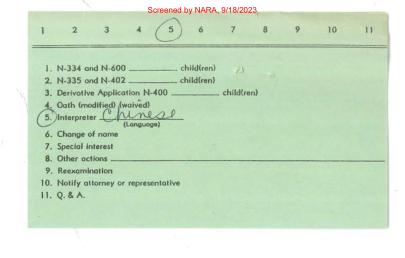 Screened by NARA, 9/18/2023
1 2 3 4 5 6 7 8 9 10 11
1. N-334 and N-600 ________ child(ren)
2. N-335 and N-402 ________ child(ren)
3. Derivative Application N-400 ________ child(ren)
4. Oath (modified) (waived)
5. Interpreter Chinese
(Language)
6. Change of name
7. Special interest
8. Other actions ________
9. Reexamination
10. Notify attorney or representative
11. Q. & A.